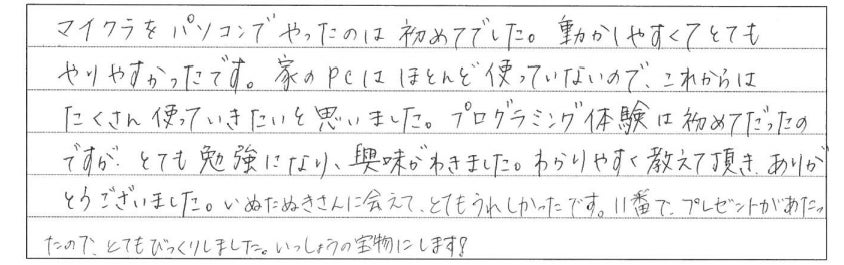 マイクラを パソコンで やったのは 初めてでした。動かしやすくてとても
やりやすかったです。家のPCは ほとんど 使っていないので、これからは
たくさん 使っていきたいと 思いました。プログラミング体験は初めてだったの
ですが、とても 勉強になり、興味がわきました。わかりやすく教えて頂き、ありが
とうございました。いぬたぬきさんに会えて、とてもうれしかったです。11番で、プレゼントがあたっ
たので、とてもびっくりしました。いっしょうの宝物にします!